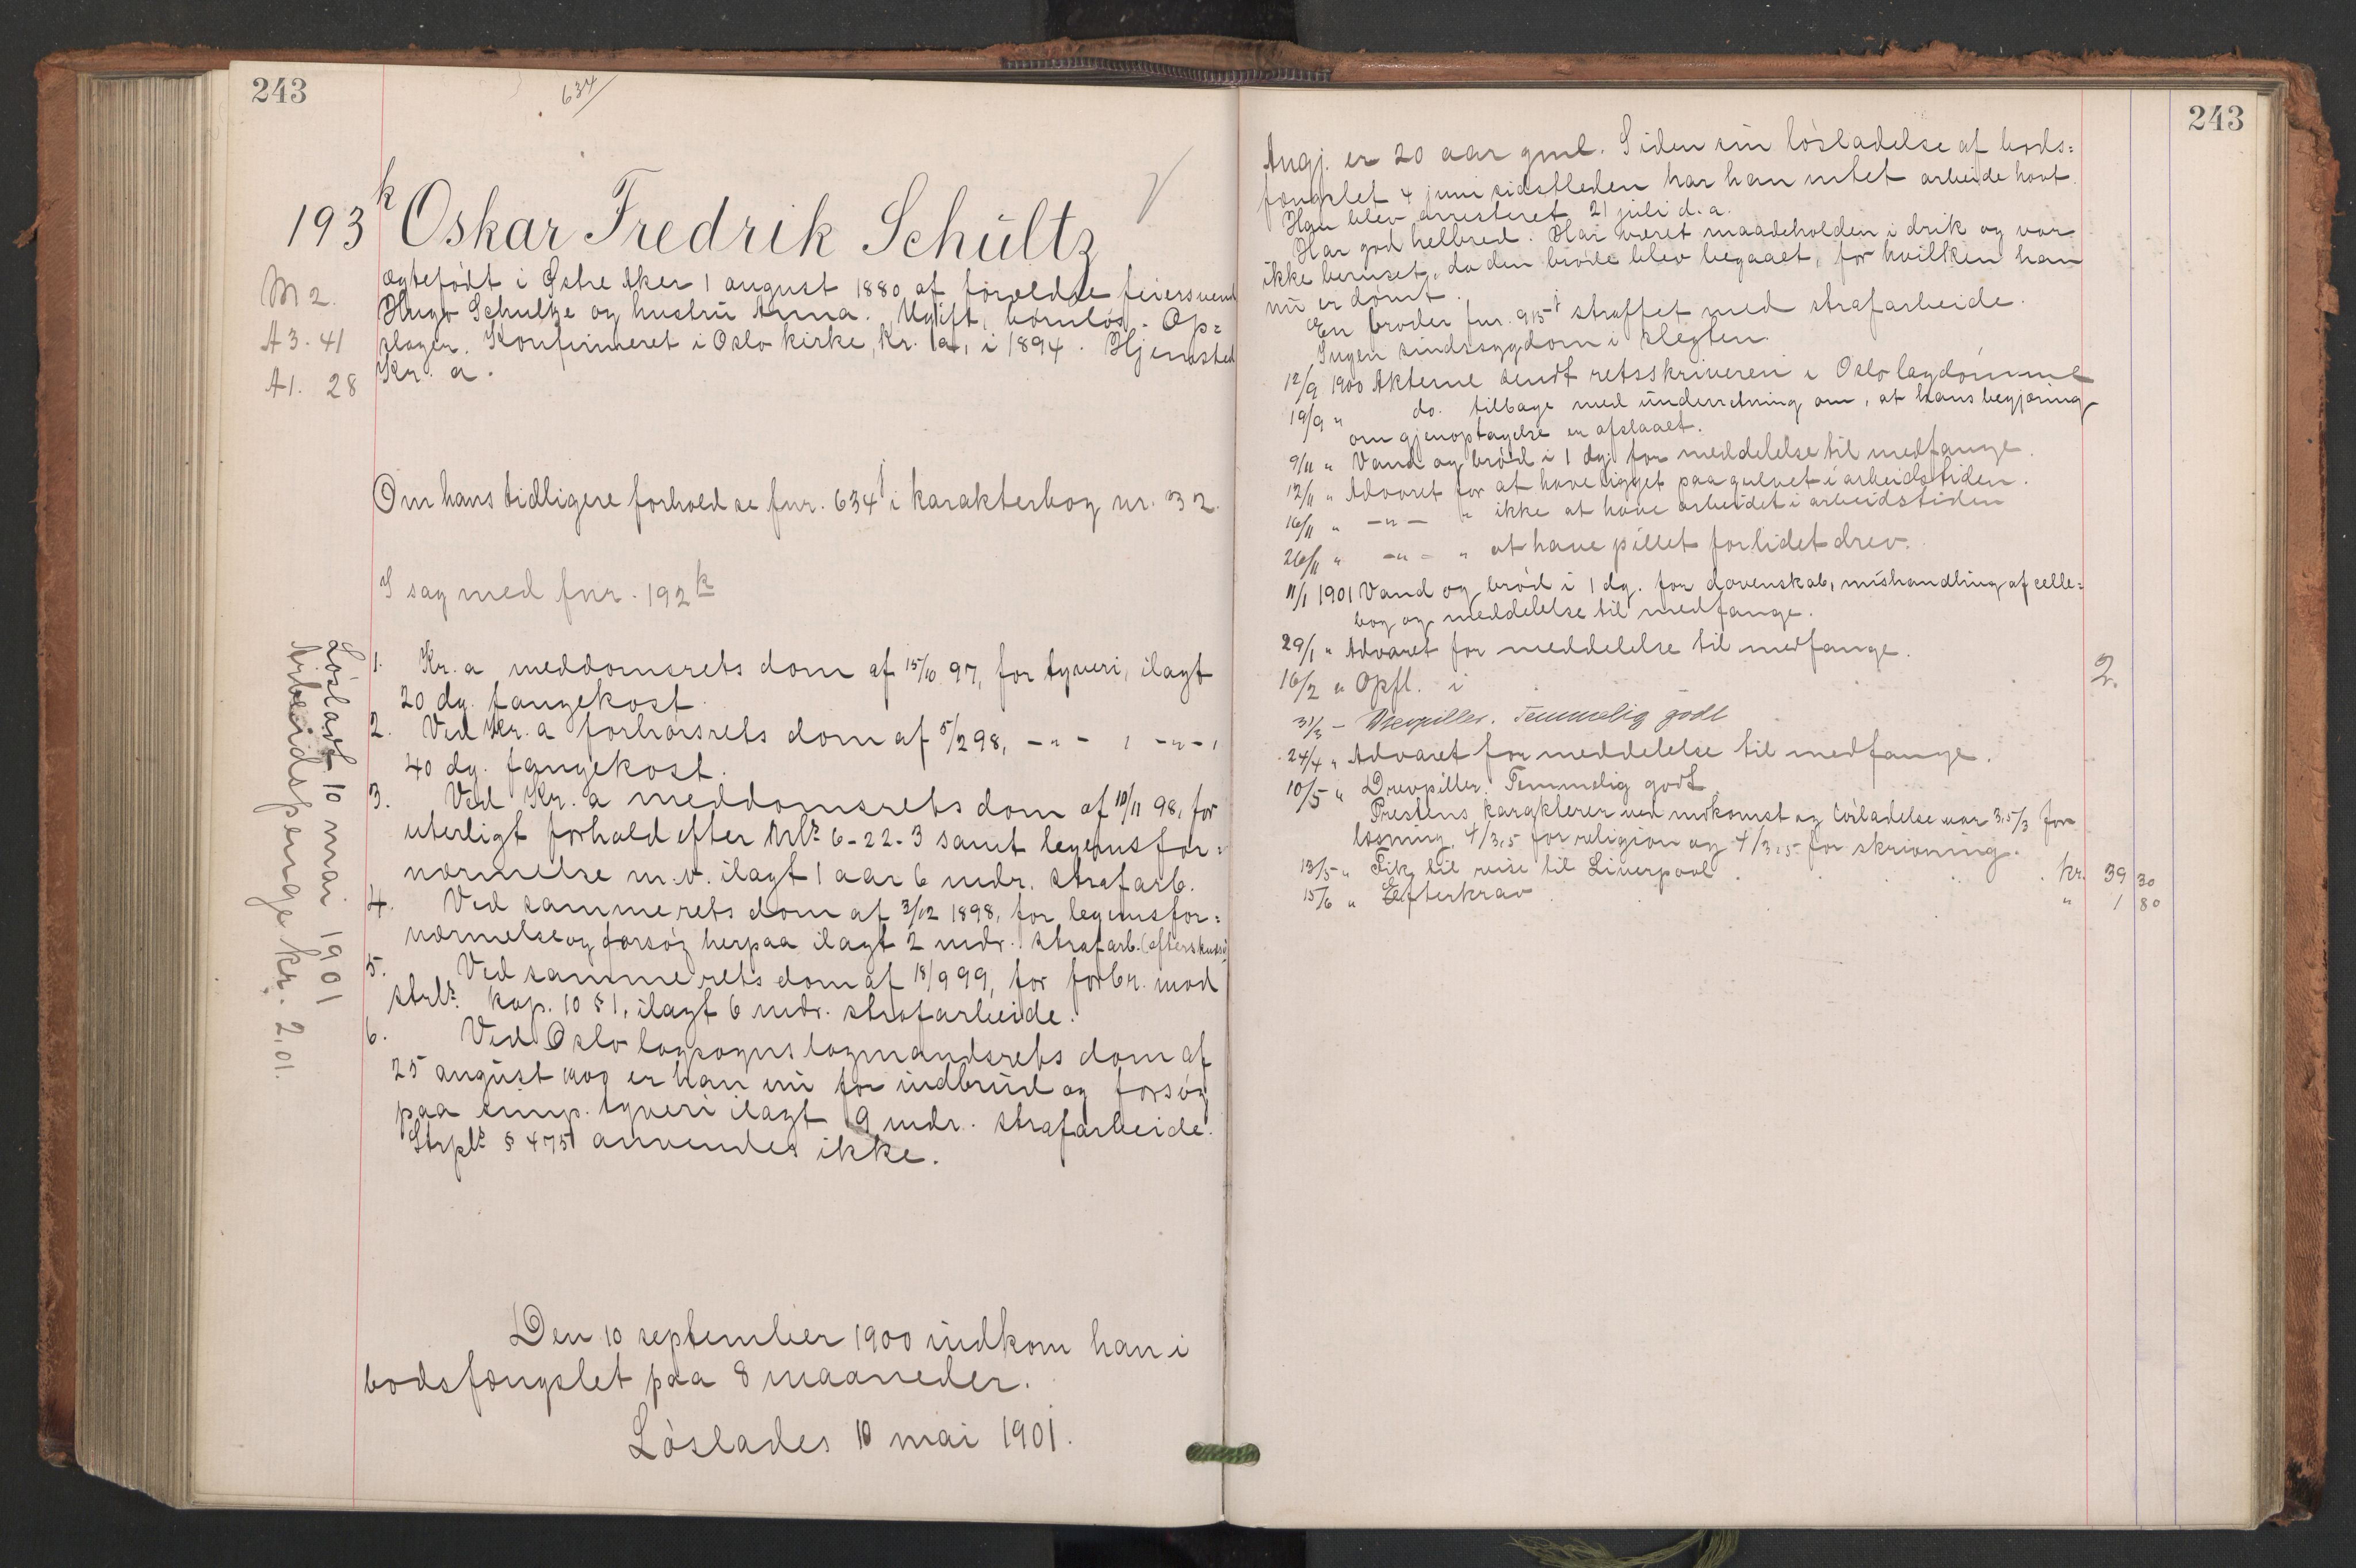 243
634/
193 k Oskar Fredrik Schültz
M 2.
A 3. 41
A 1. 28
ægtefødt i Østre Aker 1 august 1880 af forældre feiersvend
Hugo Schultze og hustru Anna. Ugift, barnløs. Op-
slager. Konfirmeret i Oslo kirke, Kr.a, i 1894. Hjemsted
Kr.a.
Om hans tidligere forhold se fnr. 634 i i karakterbog nr. 32.
I sag med fnr. 192 k
1. Kr.a meddomsrets dom af 15/10 97, for tyveri, ilagt
20 dg. fangekost.
2. Ved Kr.a forhørsrets dom af 5/2 98, -"- , -"- ,
40 dg. fangekost.
3. Ved Kr.a meddomsrets dom af 10/11 98, for
uterligt forhold efter Krls 6-22-3 samt legemsfor=
nærmelse m.v. ilagt 1 aar 6 mdr. strafarb.
4. Ved samme rets dom af 3/12 1898, for legemsfor=
nærmelse og forsøg herpaa ilagt 2 mdr. strafarb. (efterskuds)
5. Ved samme rets dom af 18/9 99, for forbr. mod
strls. kap. 10 § 1, ilagt 6 mdr. strafarbeide.
6. Ved Oslo lagsogns lagmandsrets dom af
25 august 1900 er han nu for indbrud og forsøg
paa simp. tyveri ilagt 9 mdr. strafarbeide.
Strpls § 475 anvendes ikke.
Løsladt 10 mai 1901
Arbeidspenge kr. 2,01.
Den 10 september 1900 indkom han i
bodsfængslet paa 8 maaneder.
Løslades 10 mai 1901.
243
Angj. er 20 aar gml. Siden sin løsladelse af bods=
fængslet 4 juni sidstleden har han intet arbeide havt.
Han blev arresteret 21 juli d.a.
Har god helbred. Har været maadeholden i drik og var
ikke beruset, da den brøde blev begaaet, for hvilken han
nu er dømt.
En broder fnr. 915 i straffet med strafarbeide.
Ingen sindssygdom i slegten.
12/9 1900 Akterne sendt retsskriveren i Oslo lagdømme
19/9 " do. tilbage med underretning om, at hans begjæring
om gjenoptagelse er afslaaet.
9/11 " Vand og brød i 1 dg. for meddelelse til medfange.
12/11 " Advaret for at have ligget paa gulvet i arbeidstiden.
16/11 " -"- " ikke at have arbeidet i arbeidstiden
26/11 " -"- " at have pillet for lidet drev.
11/1 1901 Vand og brød i 1 dg. for dovenskab, mishandling af celle=
bog og meddelelse til medfange.
29/1 " Advaret for meddelelse til medfange.
16/2 " Opfl. i 2.
31/3 - Drevpiller. Temmelig godt
24/4 " Advaret for meddelelse til medfange.
10/5 " Drevpiller. Temmelig godt.
Prestens karakterer ved indkomst og løsladelse var 3,5/3 for
læsning, 4/3,5 for religion og 4/3,5 for skrivning.
13/5 " Fik til reise til Liverpool . . . . . kr. 39 30
15/6 " Efterkrav . . . . . " 1 80